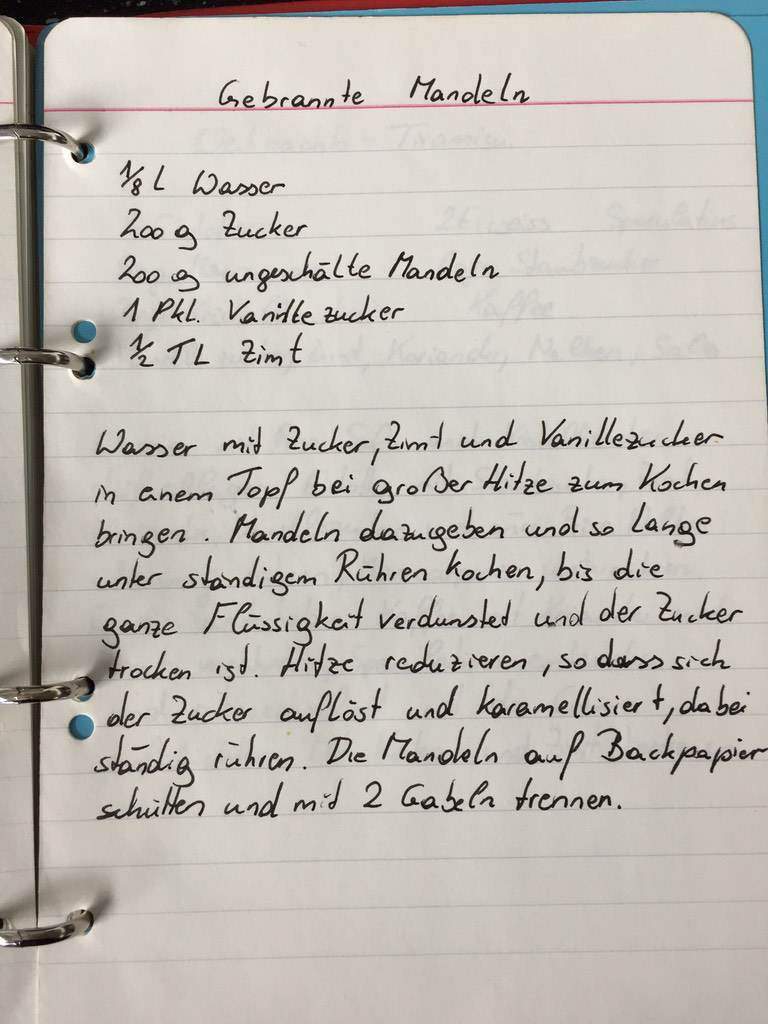 Gebrannte Mandeln
1/8 L Wasser
200 g Zucker
200 g ungeschälte Mandeln
1 Pkl. Vanillezucker
1/2 TL Zimt
Wasser mit Zucker, Zimt und Vanillezucker
in einem Topf bei großer Hitze zum Kochen
bringen. Mandeln dazugeben und so lange
unter ständigem Rühren kochen, bis die
ganze Flüssigkeit verdunsted und der Zucker
trocken ist. Hitze reduzieren, so dass sich
der Zucker auflöst und karamellisiert, dabei
ständig rühren. Die Mandeln auf Backpapier
schütten und mit 2 Gabeln trennen.